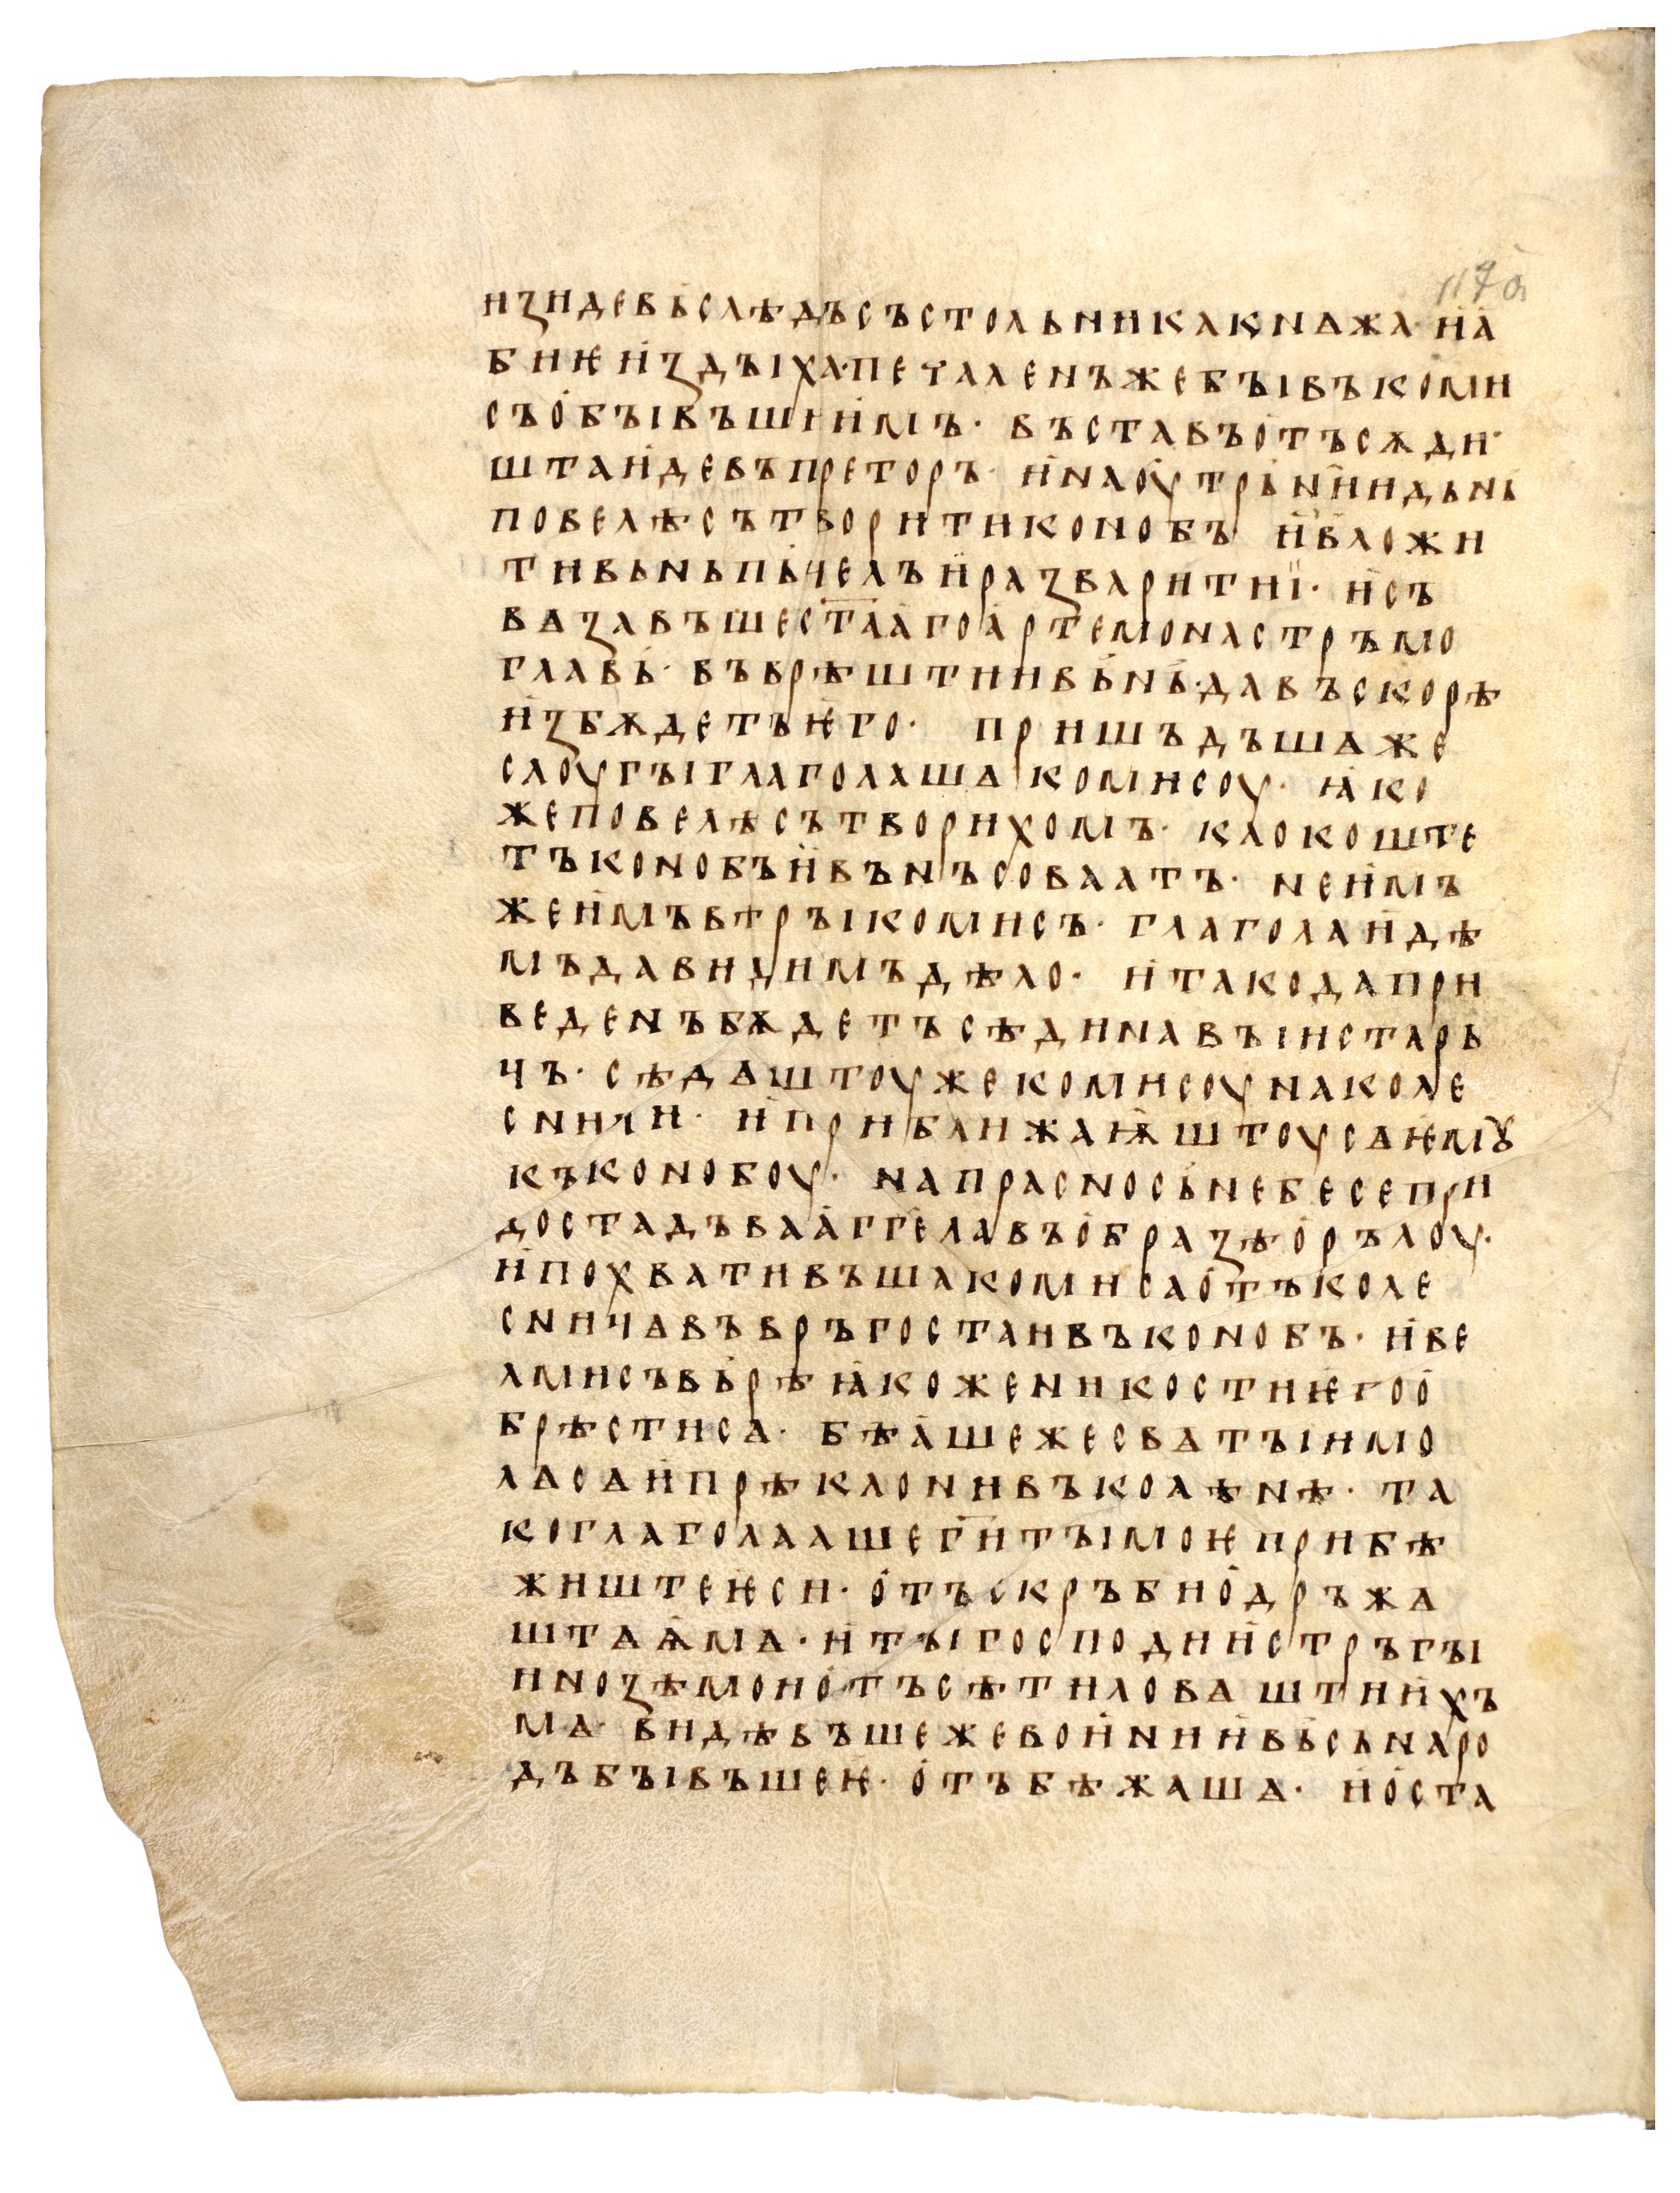 117а
изидевьслѣдъсъстольникакнѧжа·иа
биѥиздъıха·печаленъжебъıвъкоми
съобъıвъшиимъ· въставъотъсѫди·
штаидевъпреторъ· инаоутрьниидьнь
повелѣсътворитиконобъ ивложи
тивьньпьчелъиразваритиі· исъ
вѧзавъшест҃аагоартемонастръмо
главь· въврѣштиивьнь·давъскорѣ
избѫдетъѥго· пришъдъшаже
слоугъıглаголашѧкомисоу· ꙗко
жеповелѣсътворихомъ· клокоште
тъконобъивънъсоваатъ· неимъ
жеимъвѣръıкомисъ· глаголаидѣ
мъдавидимъдѣло· итакодапри
веденъбѫдетъсѣдинавъıистарь
чъ· сѣдѧштоужекомисоунаколе
сничи· иприближаѭштоусѧѥмꙋ
къконобоу· напрасносьнебесепри
достадъваагг҃елавъобразѣорълоу·
ипохвативъшакомисаотъколе
сничѧвъвръгостаивъконобъ· иве
лмисъвьрѣꙗкоженикостиѥгоо
брѣстисѧ· бѣашежесвѧтъıимо
лѧсѧипрѣклонивъколѣнѣ· та
коглаголаашег҃итъımоѥприбѣ
жиштеѥси· отъскръбиодръжѧ
штаѩмѧ· итъıгосподиистръгъı
инозѣмоиотъсѣтиловѧштиихъ
мѧ· видѣвъшежевоиниивьсьнаро
дъбъıвъшеѥ· отъбѣжашѧ· иоста